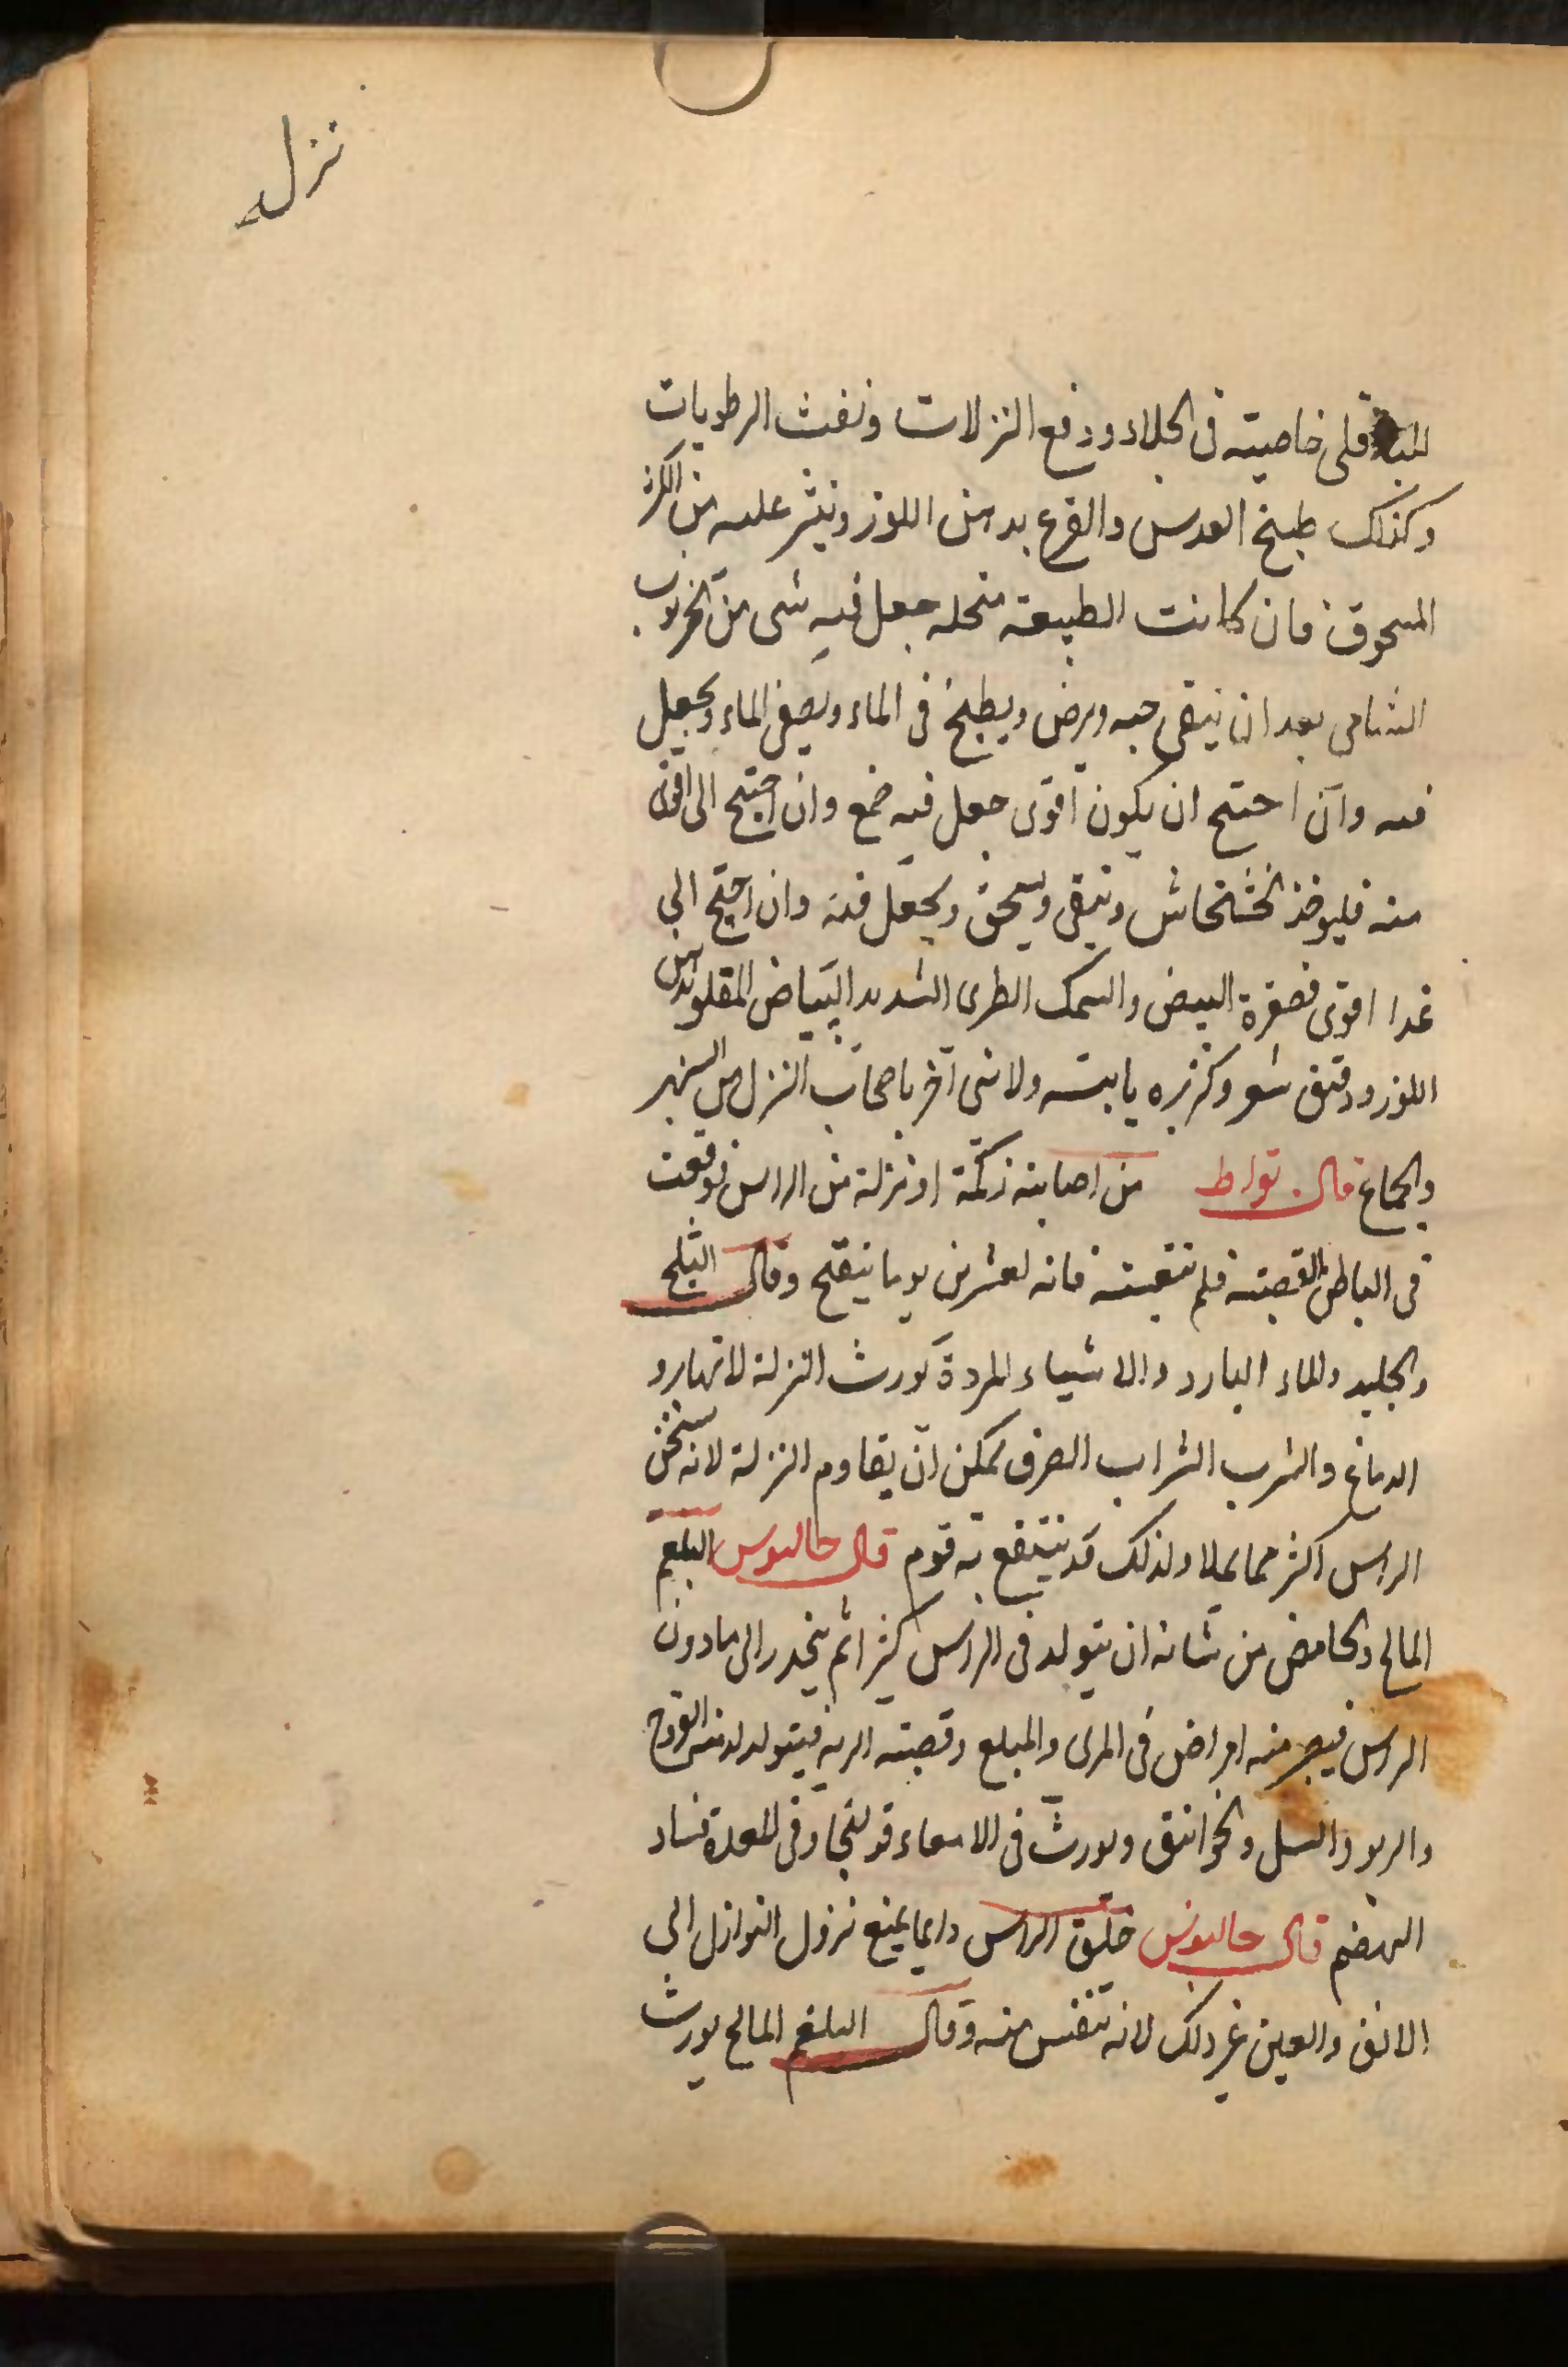 نزل
للباقلى خاصية فى الجلاء ودفع النزلات ونفث الرطوبات
وكذلك طبخ العدس والقرع بدهن اللوز وينثر عليه من الكزبرة
المسحوق فان كانت الطبيعة منحله جعل فيه شى من الخرنوب
الشامى بعد ان ينقى حبه ويرض ويطبخ فى الماء ويصفى الماء ويجعل
فيه وان احتيج ان يكون اقوى جعل فيه صمغ وان احتيج الى اقوى
منه فليوخذ الخشخاش وينقى ويسحق ويجعل فيه وان احتيج الى
غدا اقوى فصفرة البيض والسمك الطرى الشديد البياض المقلو بدهن
اللوز ودقيق شعير وكزبره يابسه ولا شى اضر باصحاب النزل من السهر
والجماع قال بقراط من اصابته زكمة او نزلة من الراس فوقعت
فى الباطن القصبه فلم فانه لعشرين يوما ينقيح وقال الثلج
والجليد والماء البارد والاشياء المبردة تورث النزلة لانها
الدماغ والشرب الشراب الصرف يمكن ان يقاوم النزلة لانه يسخن
الراس اكثر مما يملا ولذلك قد ينتفع به قوم قال جالينوس البلغم
المالح والحامض من شانه ان يتولد فى الراس كثيرا ثم ينحدر الى ما دون
الراس فيصير منه امراض فى المرى والمبلع وقصبه الريه فيتولد القروح
والربو والسل والخوانيق ويورث فى الامعاء قولنجا وفى المعدة فساد
الهضم قال جالينوس حلق الراس دايما يمنع نزول النوازل الى
الانف والعين غير ذلك لانه تتنفس منه وقال البلغم المالح يورث